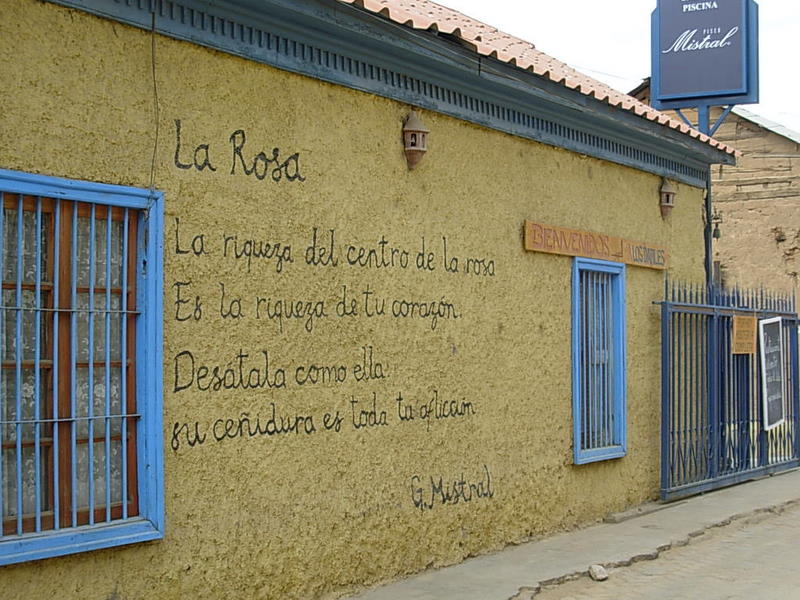 PISCINA
PISCO
Mistral
La Rosa
La riqueza del centro de la rosa
Es la riqueza de tu corazón.
Desátala como ella:
su ceñidura es toda tu aflicción
G. Mistral
BIENVENIDOS
LOS DATILES